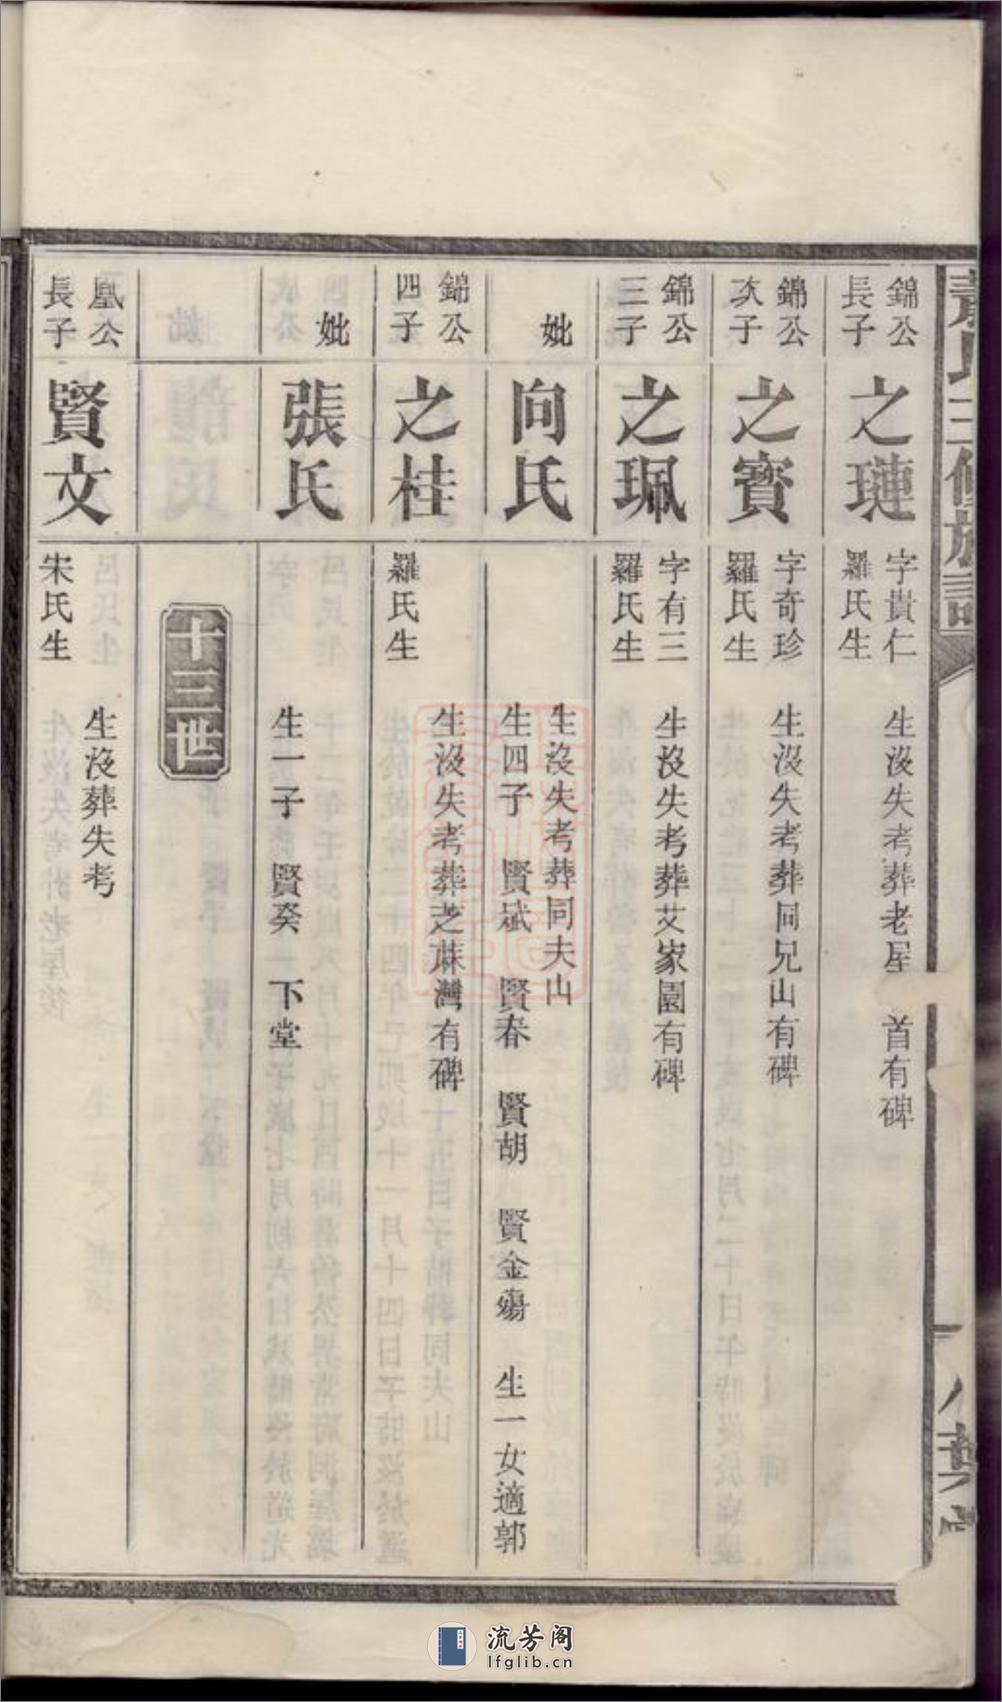 氏三修族譜
錦公長子
之璉
字貴仁羅氏生
生沒失考葬老屋 首有碑
錦公次子
之寶
字奇珍羅氏生
生沒失考葬同兄山有碑
錦公三子
之珮
字有三羅氏生
生沒失考葬艾家園有碑
妣
向氏
生沒失考葬同夫山
生四子 賢斌 賢春 賢胡 賢金殤 生一女適郭
錦公四子
之桂
羅氏生
生沒失考葬芝蔴灣有碑
妣
張氏
生一子 賢癸 下堂
十三世
鳳公長子
賢文
宋氏生
生沒葬失考
流芳阁
lfglib.cn